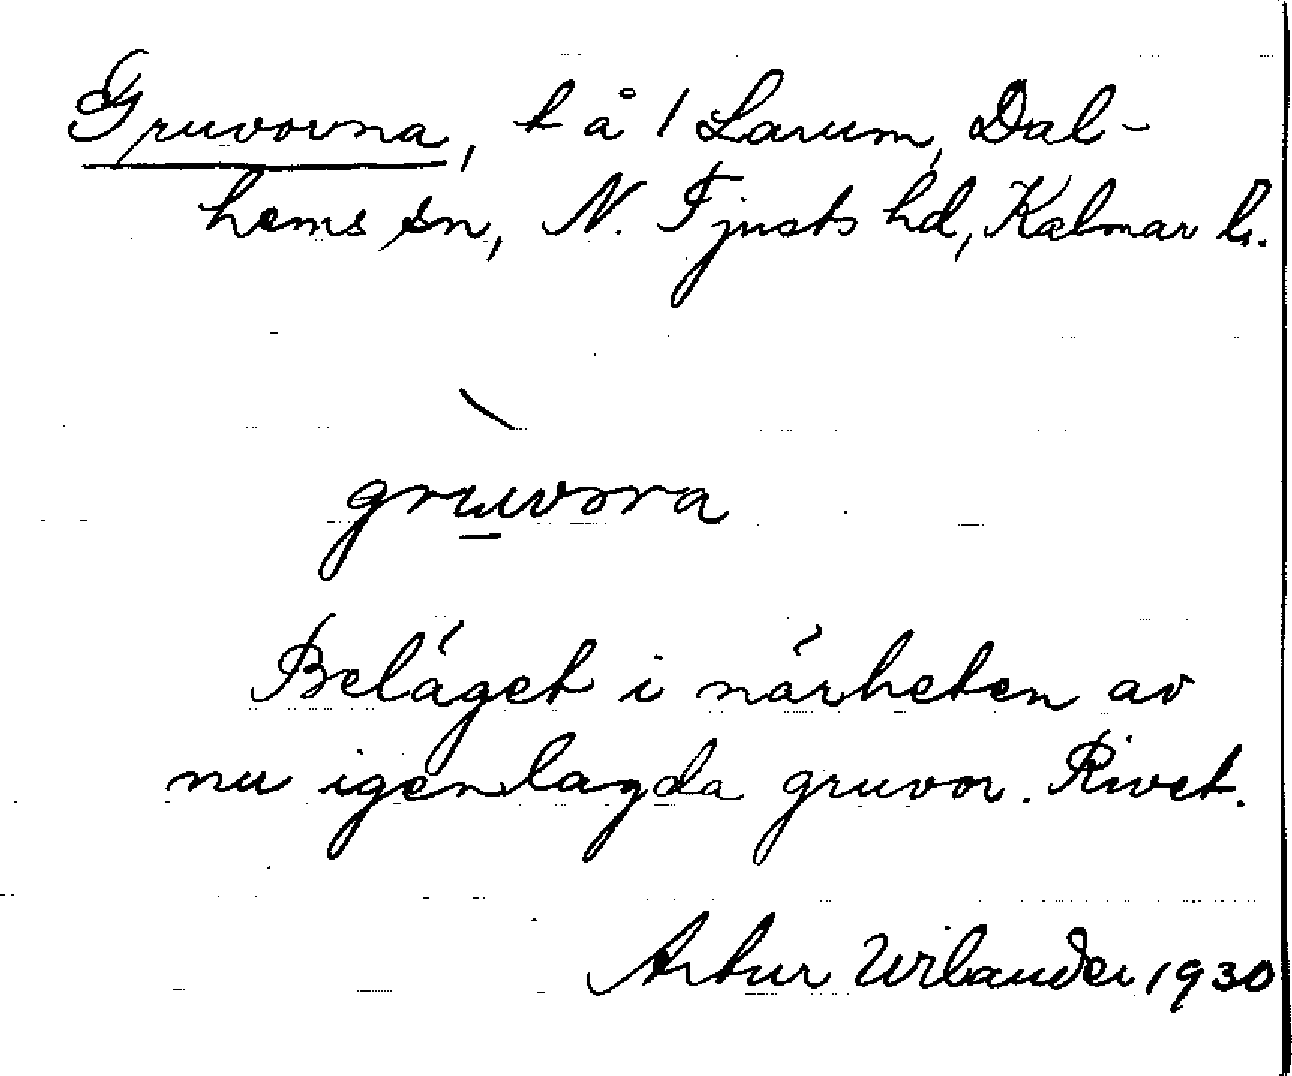 Gruvorna, t å 1 Larum, Dal-
hems sn, N. Tjusts hd, Kalmar l.
grùvora
Beläget i närheten av
nu igenlagda gruvor. Rivet.
Artur Wilander 1930